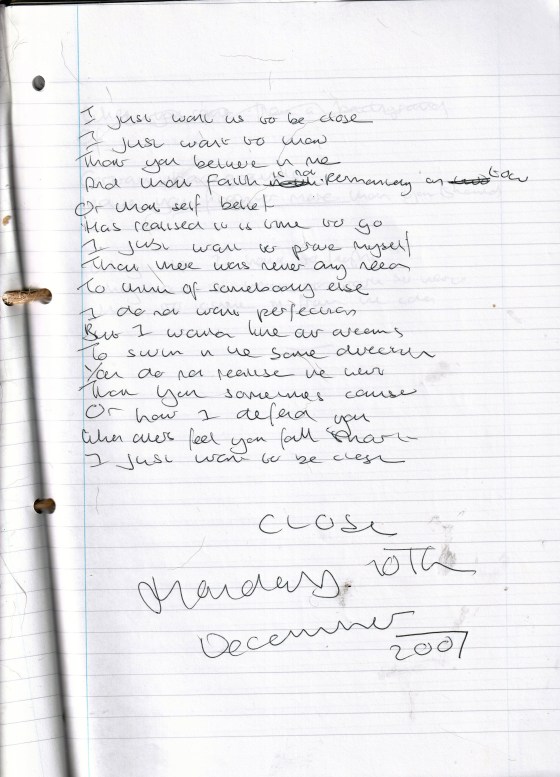 I just want us to be close
I just want to know
That you believe in me
And that faith is not permanently on
Or that self belief
Has realised it is time to go
I just want to prove myself
That there was never any need
To think of somebody else
I do not want perfection
But I would like our dreams
To swim in the same direction
You do not realise the hurt
That you sometimes cause
Or how I defend you
When others feel you fall short
I just want to be close
CLOSE
10TH
December
2007